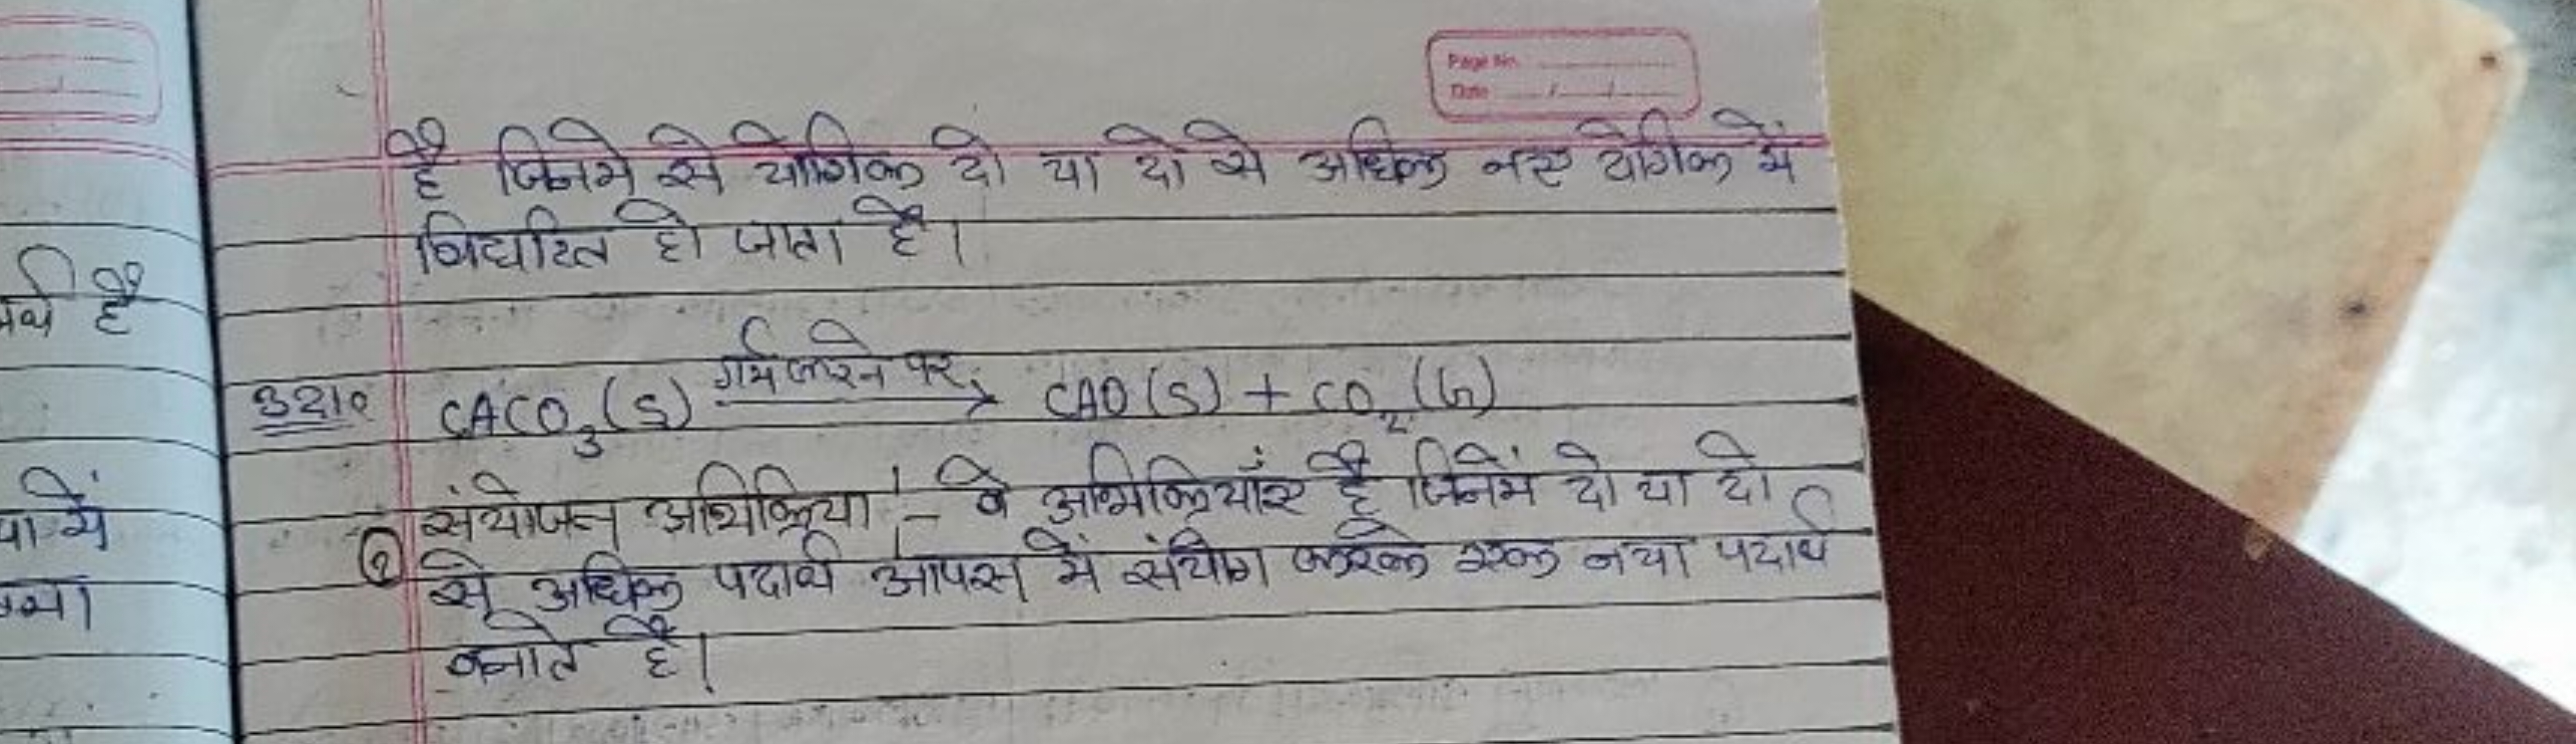 Page No.
Date / /
है जिनमे से योगिक दो या दो से अधिक नए योगिक में
विघटित हो जाता है।
उदा० CACO₃(S) गर्म करने पर → CAO(S) + CO₂(G)
② संयोजन अभिक्रिया :- वे अभिक्रियाँए है जिनमें दो या दो
से अधिक पदार्थ आपस में संयोग करके एक नया पदार्थ
बनाते है।
है
या में